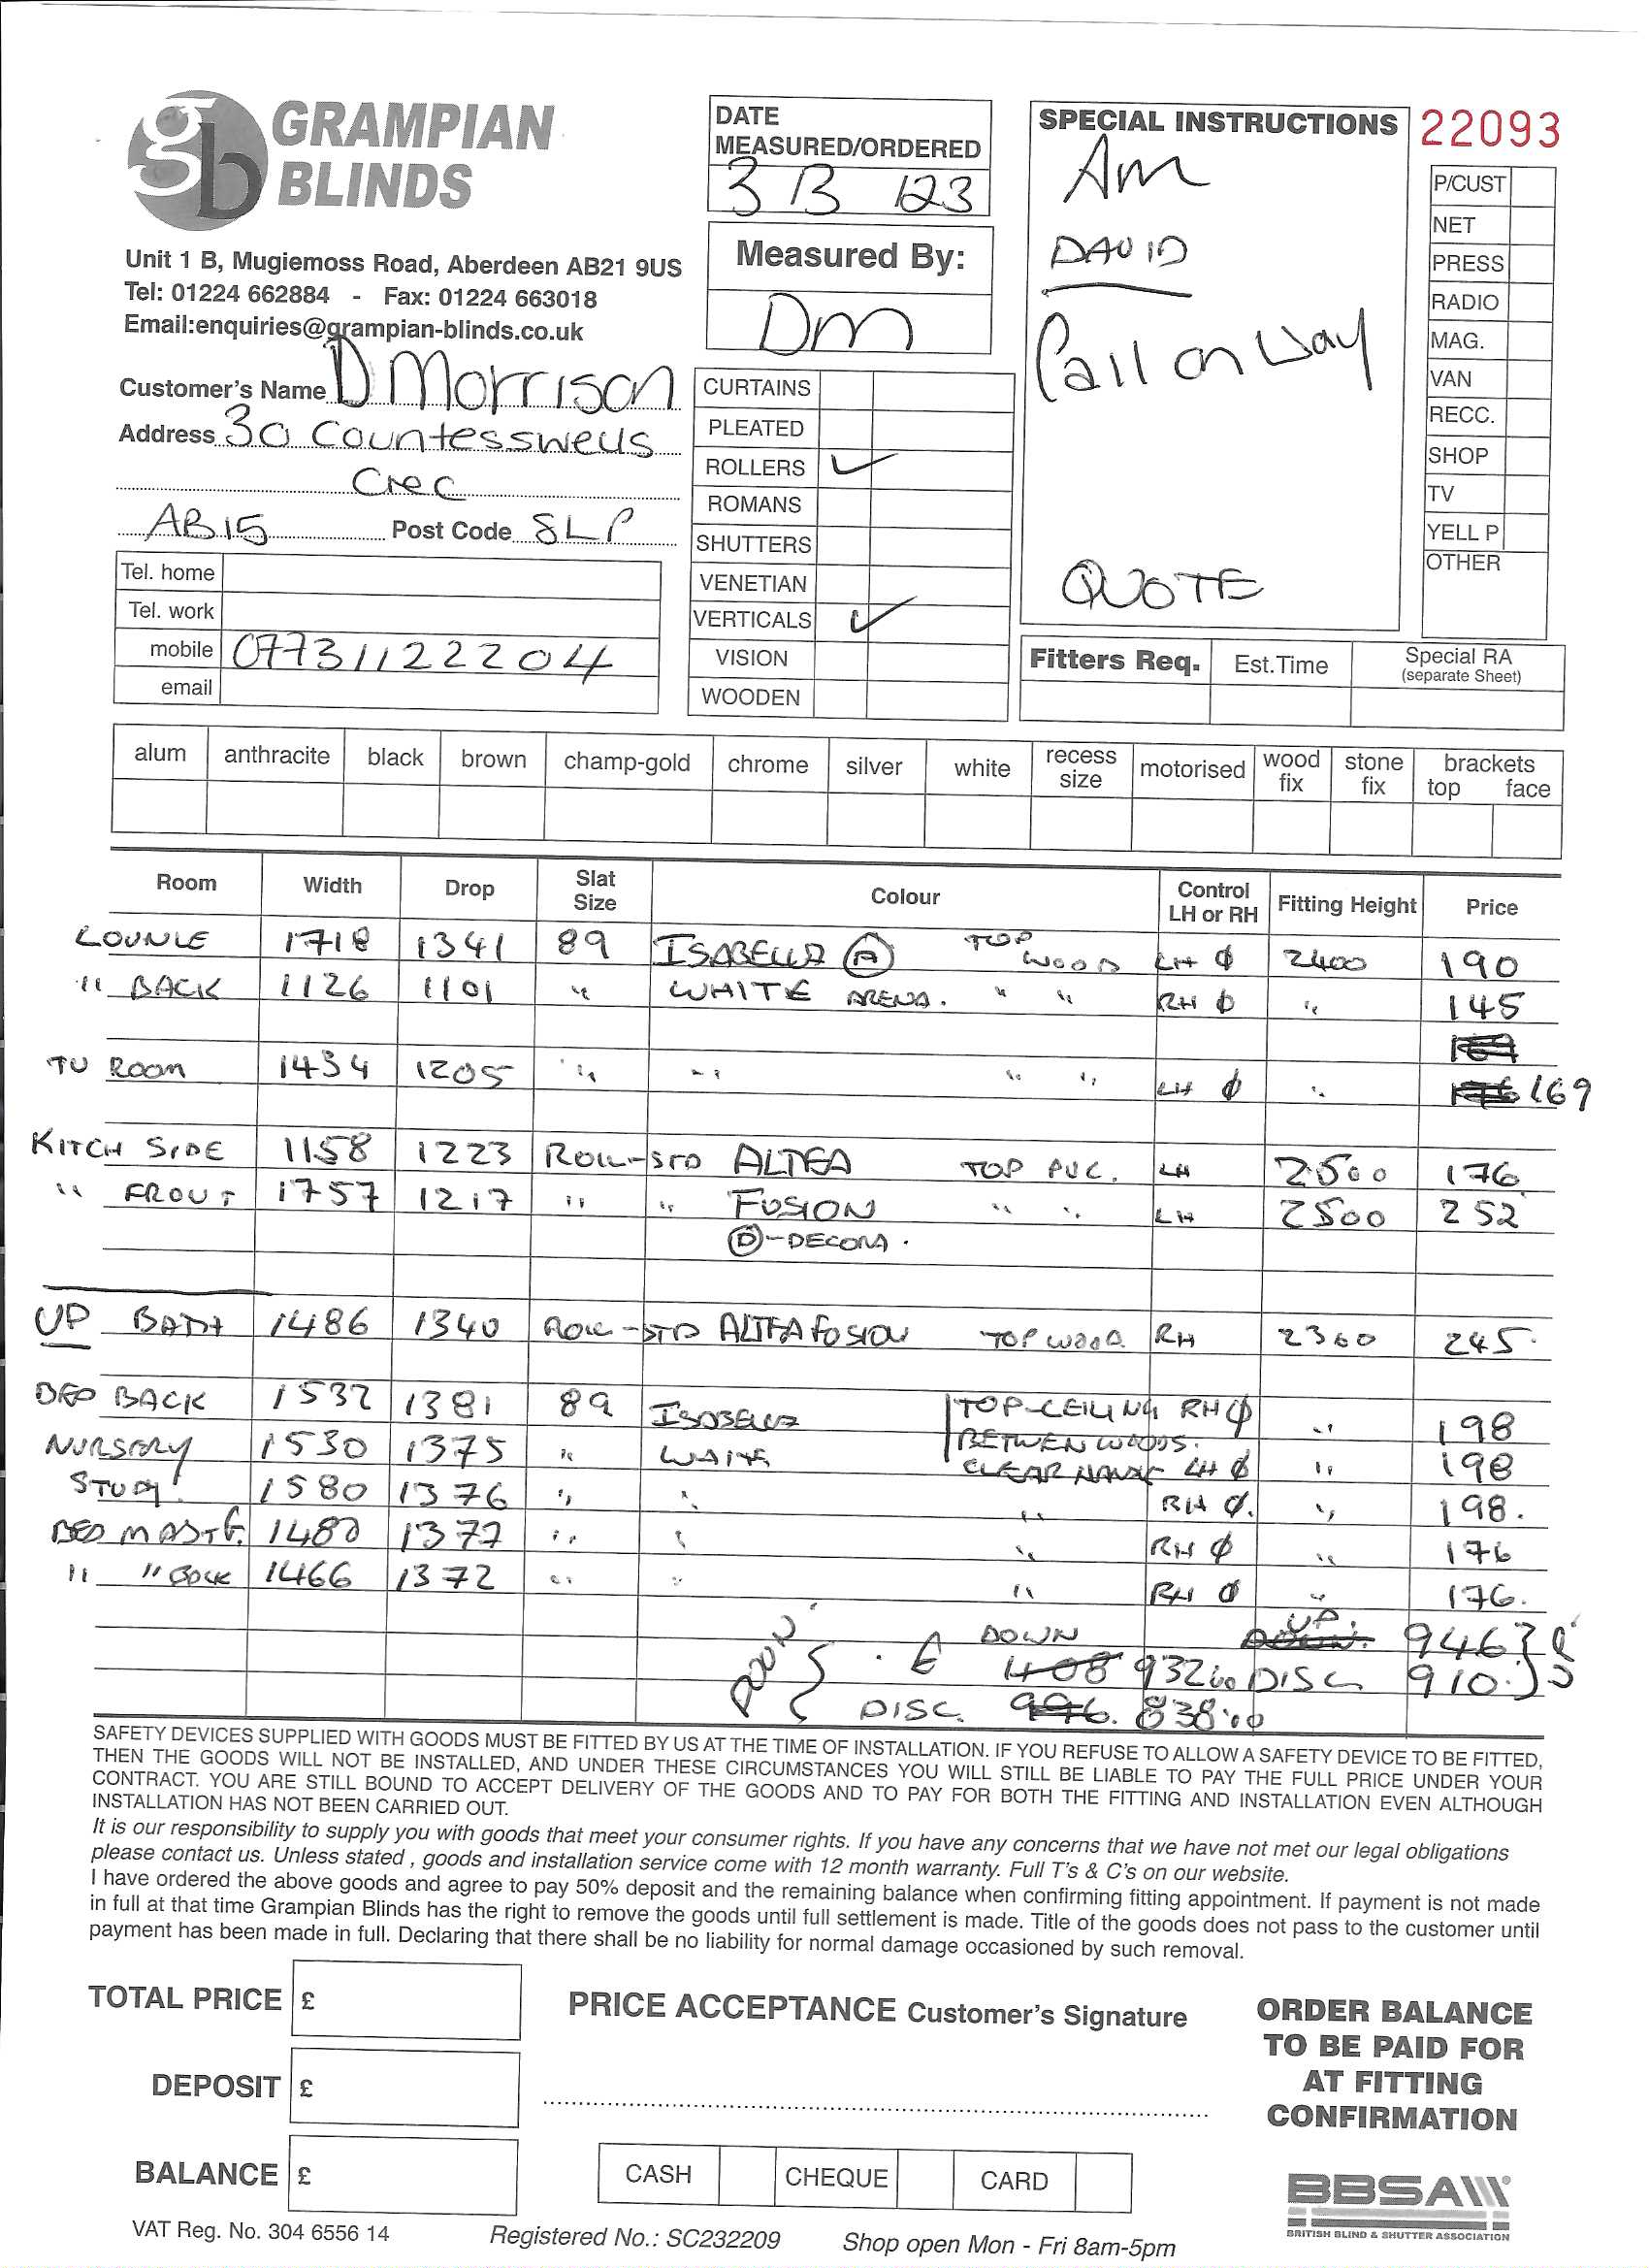 GRAMPIAN
BLINDS
Unit 1 B, Mugiemoss Road, Aberdeen AB21 9US
Tel: 01224 662884 - Fax: 01224 663018
Email:enquiries@grampian-blinds.co.uk
Customer's Name D Morrison
Address 30 Countesswells
Crec
AB15 Post Code 8LP
Tel. home
Tel. work
mobile 07731122204
email
DATE
MEASURED/ORDERED
3 13 123
Measured By:
Dm
CURTAINS
PLEATED
ROLLERS ✓
ROMANS
SHUTTERS
VENETIAN
VERTICALS ✓
VISION
WOODEN
SPECIAL INSTRUCTIONS
Am
DAVID
Call on Way
QUOTE
22093
P/CUST
NET
PRESS
RADIO
MAG.
VAN
RECC.
SHOP
TV
YELL P
OTHER
Fitters Req. Est.Time Special RA
(separate Sheet)
alum anthracite black brown champ-gold chrome silver white recess size motorised wood fix stone fix brackets top face
Room Width Drop Slat Size Colour Control LH or RH Fitting Height Price
LOUNGE 1718 1341 89 ISABELLA (A) TOP WOOD LH ϕ 2400 190
" BACK 1126 1101 " WHITE ARENA. " " RH ϕ " 145
TV ROOM 1434 1205 " " " " LH ϕ " 169
KITCH SIDE 1158 1223 ROLL-STD ALTEA TOP PVC. LH 2500 176
" FRONT 1757 1217 " " FUSION " " LH 2500 252
(D)-DECORA.
UP BATH 1486 1340 ROLL-STD ALTEA FUSION TOP WOOD. RH 2360 245.
BED BACK 1532 1381 89 ISOBELLA TOP-CEILING RH ϕ " 198
NURSERY 1530 1375 " WHITE BETWEN WOODS. CLEAR LH ϕ " 198
STUDY 1580 1376 " " " RH ϕ. " 198.
BED MAST F. 1480 1377 " " " RH ϕ " 176
" " BACK 1466 1372 " " " RH ϕ " 176.
DOWN UP. 946
DOWN 932 DISC 910.
DISC. 838
SAFETY DEVICES SUPPLIED WITH GOODS MUST BE FITTED BY US AT THE TIME OF INSTALLATION. IF YOU REFUSE TO ALLOW A SAFETY DEVICE TO BE FITTED,
THEN THE GOODS WILL NOT BE INSTALLED, AND UNDER THESE CIRCUMSTANCES YOU WILL STILL BE LIABLE TO PAY THE FULL PRICE UNDER YOUR
CONTRACT. YOU ARE STILL BOUND TO ACCEPT DELIVERY OF THE GOODS AND TO PAY FOR BOTH THE FITTING AND INSTALLATION EVEN ALTHOUGH
INSTALLATION HAS NOT BEEN CARRIED OUT.
It is our responsibility to supply you with goods that meet your consumer rights. If you have any concerns that we have not met our legal obligations
please contact us. Unless stated , goods and installation service come with 12 month warranty. Full T's & C's on our website.
I have ordered the above goods and agree to pay 50% deposit and the remaining balance when confirming fitting appointment. If payment is not made
in full at that time Grampian Blinds has the right to remove the goods until full settlement is made. Title of the goods does not pass to the customer until
payment has been made in full. Declaring that there shall be no liability for normal damage occasioned by such removal.
TOTAL PRICE £
DEPOSIT £
BALANCE £
PRICE ACCEPTANCE Customer's Signature
CASH CHEQUE CARD
ORDER BALANCE
TO BE PAID FOR
AT FITTING
CONFIRMATION
BBSA
BRITISH BLIND & SHUTTER ASSOCIATION
VAT Reg. No. 304 6556 14 Registered No.: SC232209 Shop open Mon - Fri 8am-5pm